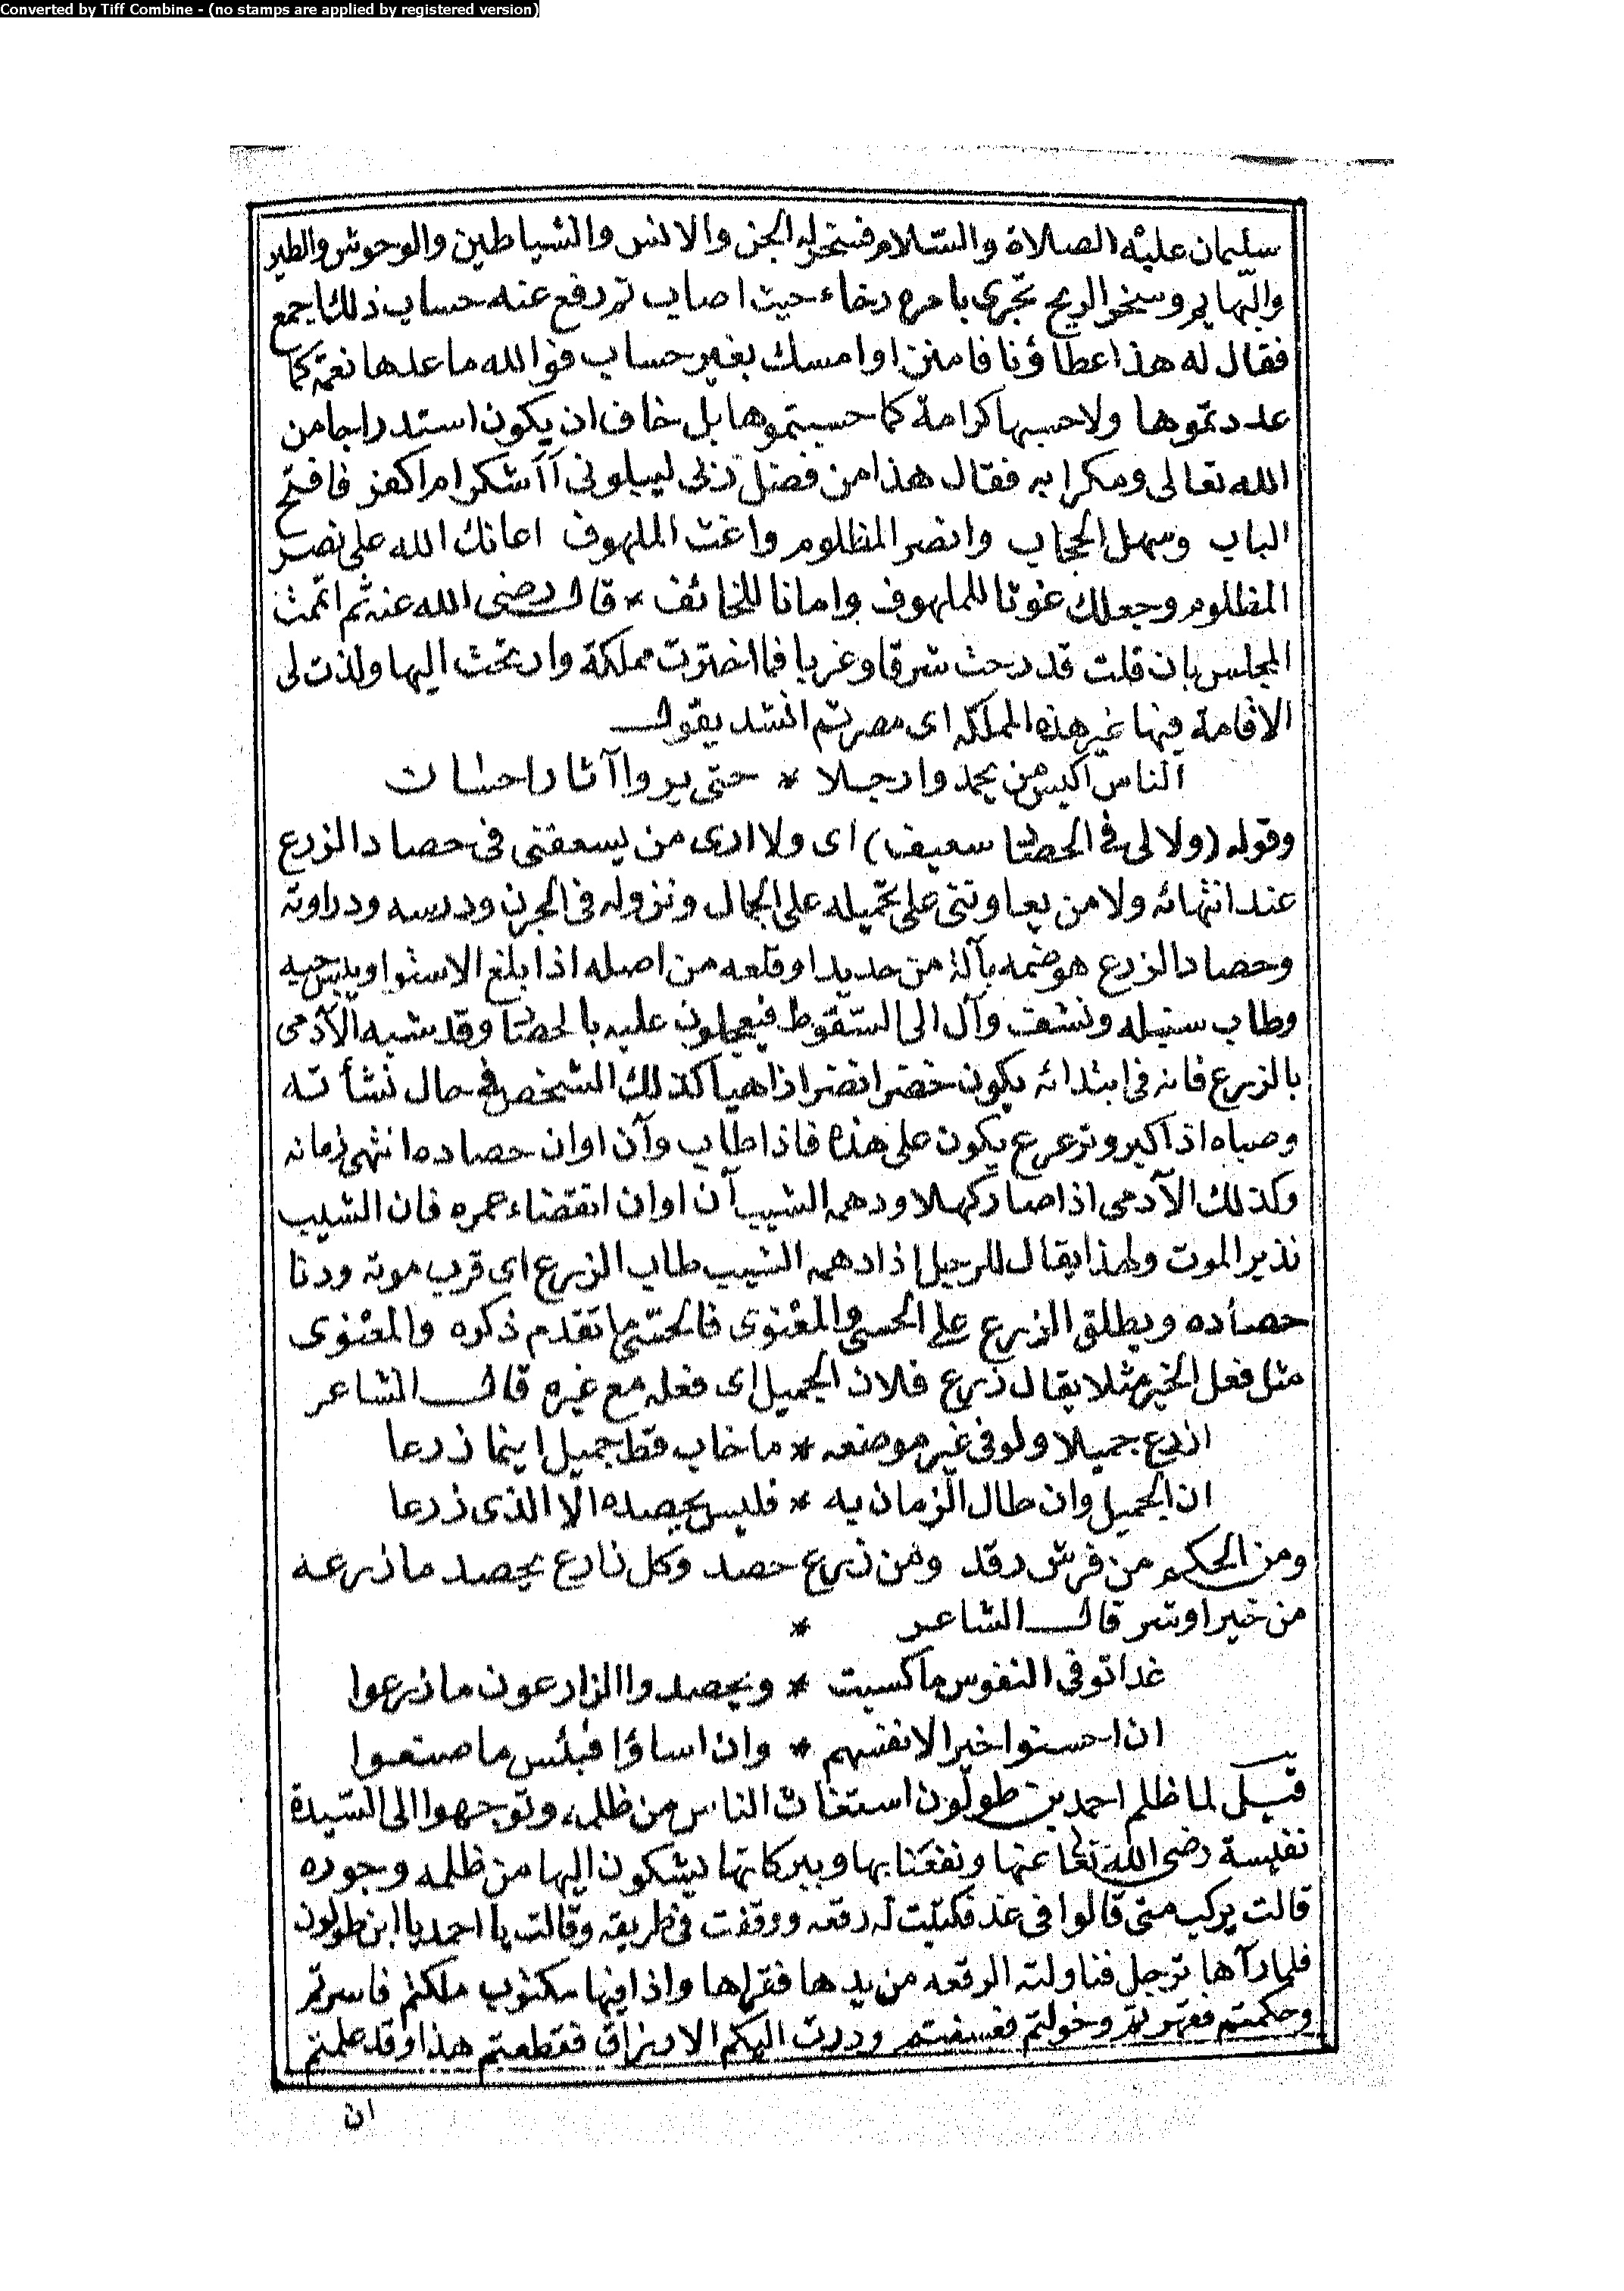 Converted by Tiff Combine - (no stamps are applied by registered version)
سليمان عليه الصلاة والسلام فسخر له الجن والانس والشياطين والوحوش والطير
والبهايم وسخر الريح تجرى بامره رخاء حيث اصاب ثم رفع عنه حساب ذلك اجمع
فقال له هذا عطاؤنا فامنن او امسك بغير حساب فوالله ما عدها نعمة كما
عددتموها ولا حسبها كرامة كما حسبتموها بل خاف ان يكون استدراجا من
الله تعالى ومكرا به فقال هذا من فضل ربى ليبلونى أأشكر ام اكفر فافتح
الباب وسهل الحجاب وانصر المظلوم واغث الملهوف اعانك الله على نصر
المظلوم وجعلك غوثا للملهوف وامانا للخائف * قال رضى الله عنه ثم اتممت
المجلس بان قلت قد درحت شرقا وغربا فما اخترت مملكة وارتحت اليها ولذت لى
الاقامة فيها غير هذه المملكه اى مصر ثم انشد يقول
الناس اكيس من يحمدوا رجلا * حتى يروا آثار احسان
وقوله (ولا لى فى الحصاد سعيف) اى ولا ارى من يسعفنى فى حصاد الزرع
عند انتهائه ولا من يعاوننى على تحميله على الجمال ونزوله فى الجرن ودرسه ودراوته
وحصاد الزرع هو ضمه بآلة من حديد او قلعه من اصله اذا بلغ الاستوا ويبس حبه
وطاب سنبله ونشفت وآل الى السقوط فيعجلون عليه بالحصاد وقد شبه الآدمى
بالزرع فانه فى ابتدائه يكون خضرا نضرا زاهيا كذلك الشخص فى حال نشأته
وصباه اذا كبر وترعرع يكون على هذه فاذا طاب وآن اوان حصاده انتهى زمانه
وكذلك الآدمى اذا صار كهلا ودهمه الشيب آن اوان انقضاء عمره فان الشيب
نذير الموت ولهذا يقال للرجل اذا دهمه الشيب طاب الزرع اى قرب موته ودنا
حصاده ويطلق الزرع على الحسى والمعنوى فالحسى ما تقدم ذكره والمعنوى
مثل فعل الخير مثلا يقال زرع فلان الجميل اى فعله مع غيره قال الشاعر
ازرع جميلا ولو فى غير موضعه * ما خاب قط جميل اينما زرعا
ان الجميل وان طال الزمان به * فليس يحصده الا الذى زرعا
ومن الحكم من فرش رقد ومن زرع حصد وكل زارع يحصد ما زرعه
من خير او شر قال الشاعر *
غدا توفى النفوس ما كسبت * ويحصدوا الزارعون ما زرعوا
ان احسنوا خيرا لانفسهم * وان اساؤا فبئس ما صنعوا
قيل لما ظلم احمد بن طولون استغاث الناس من ظلمه وتوجهوا الى السيدة
نفيسة رضى الله تعالى عنها ونفعنا بها وببركاتها يشكون اليها من ظلمه وجوره
قالت يركب متى قالوا فى غد فكتبت له رقعه ووقفت فى طريقه وقالت يا احمد يا ابن طولون
فلما رآها ترجل فناولته الرقعه من يدها فقراها واذا فيها مكتوب ملكتم فاسرتم
وحكمتم فقهرتم وخولتم فعسفتم ودرت اليكم الارزاق فقطعتم هذا وقد علمتم
ان